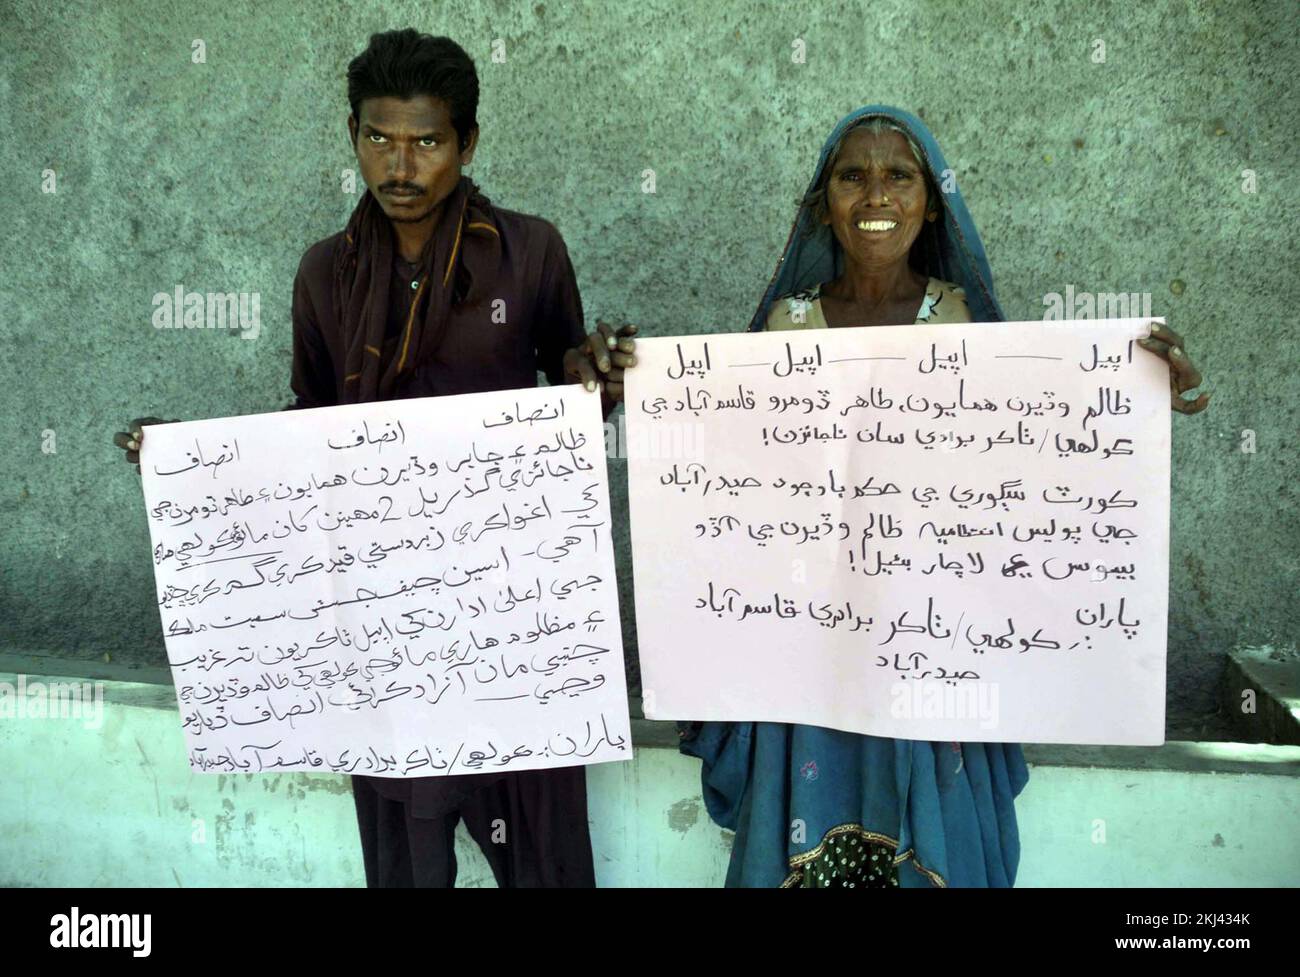 انصاف انصاف انصاف
ظالم ۽ جابر وڏيرن همايون ۽ طاهر
ناجائزي گذريل 2 مهينن کان
کي اغوا ڪري زبردستي قيد ڪري گم ڪري
آهي - اسين چيف جسٽس سميت ملڪ
جي اعليٰ ادارن کي اپيل ٿا ڪريون ته غريب
۽ مظلوم هاري مائوجي ڪولهي کي ظالم وڏيرن جي
چنبي مان آزاد ڪرائي انصاف ڏياريو
وڃي
پاران: ڪولهي/ٺاڪر برادري قاسم آباد حيدرآباد
اپيل — اپيل — اپيل — اپيل
ظالم وڏيرن همايون، طاهر ڏومرو قاسم آباد جي
ڪولهي/ٺاڪر برادري سان ناجائزن!
ڪورٽ سڳوري جي حڪم باوجود حيدرآباد
جي پوليس انتظاميه ظالم وڏيرن جي آڏو
بيوس ۽ لاچار بڻيل!
پاران
:. ڪولهي/ٺاڪر برادري قاسم آباد
حيدرآباد
alamy
Image ID: 2KJ434K
www.alamy.com